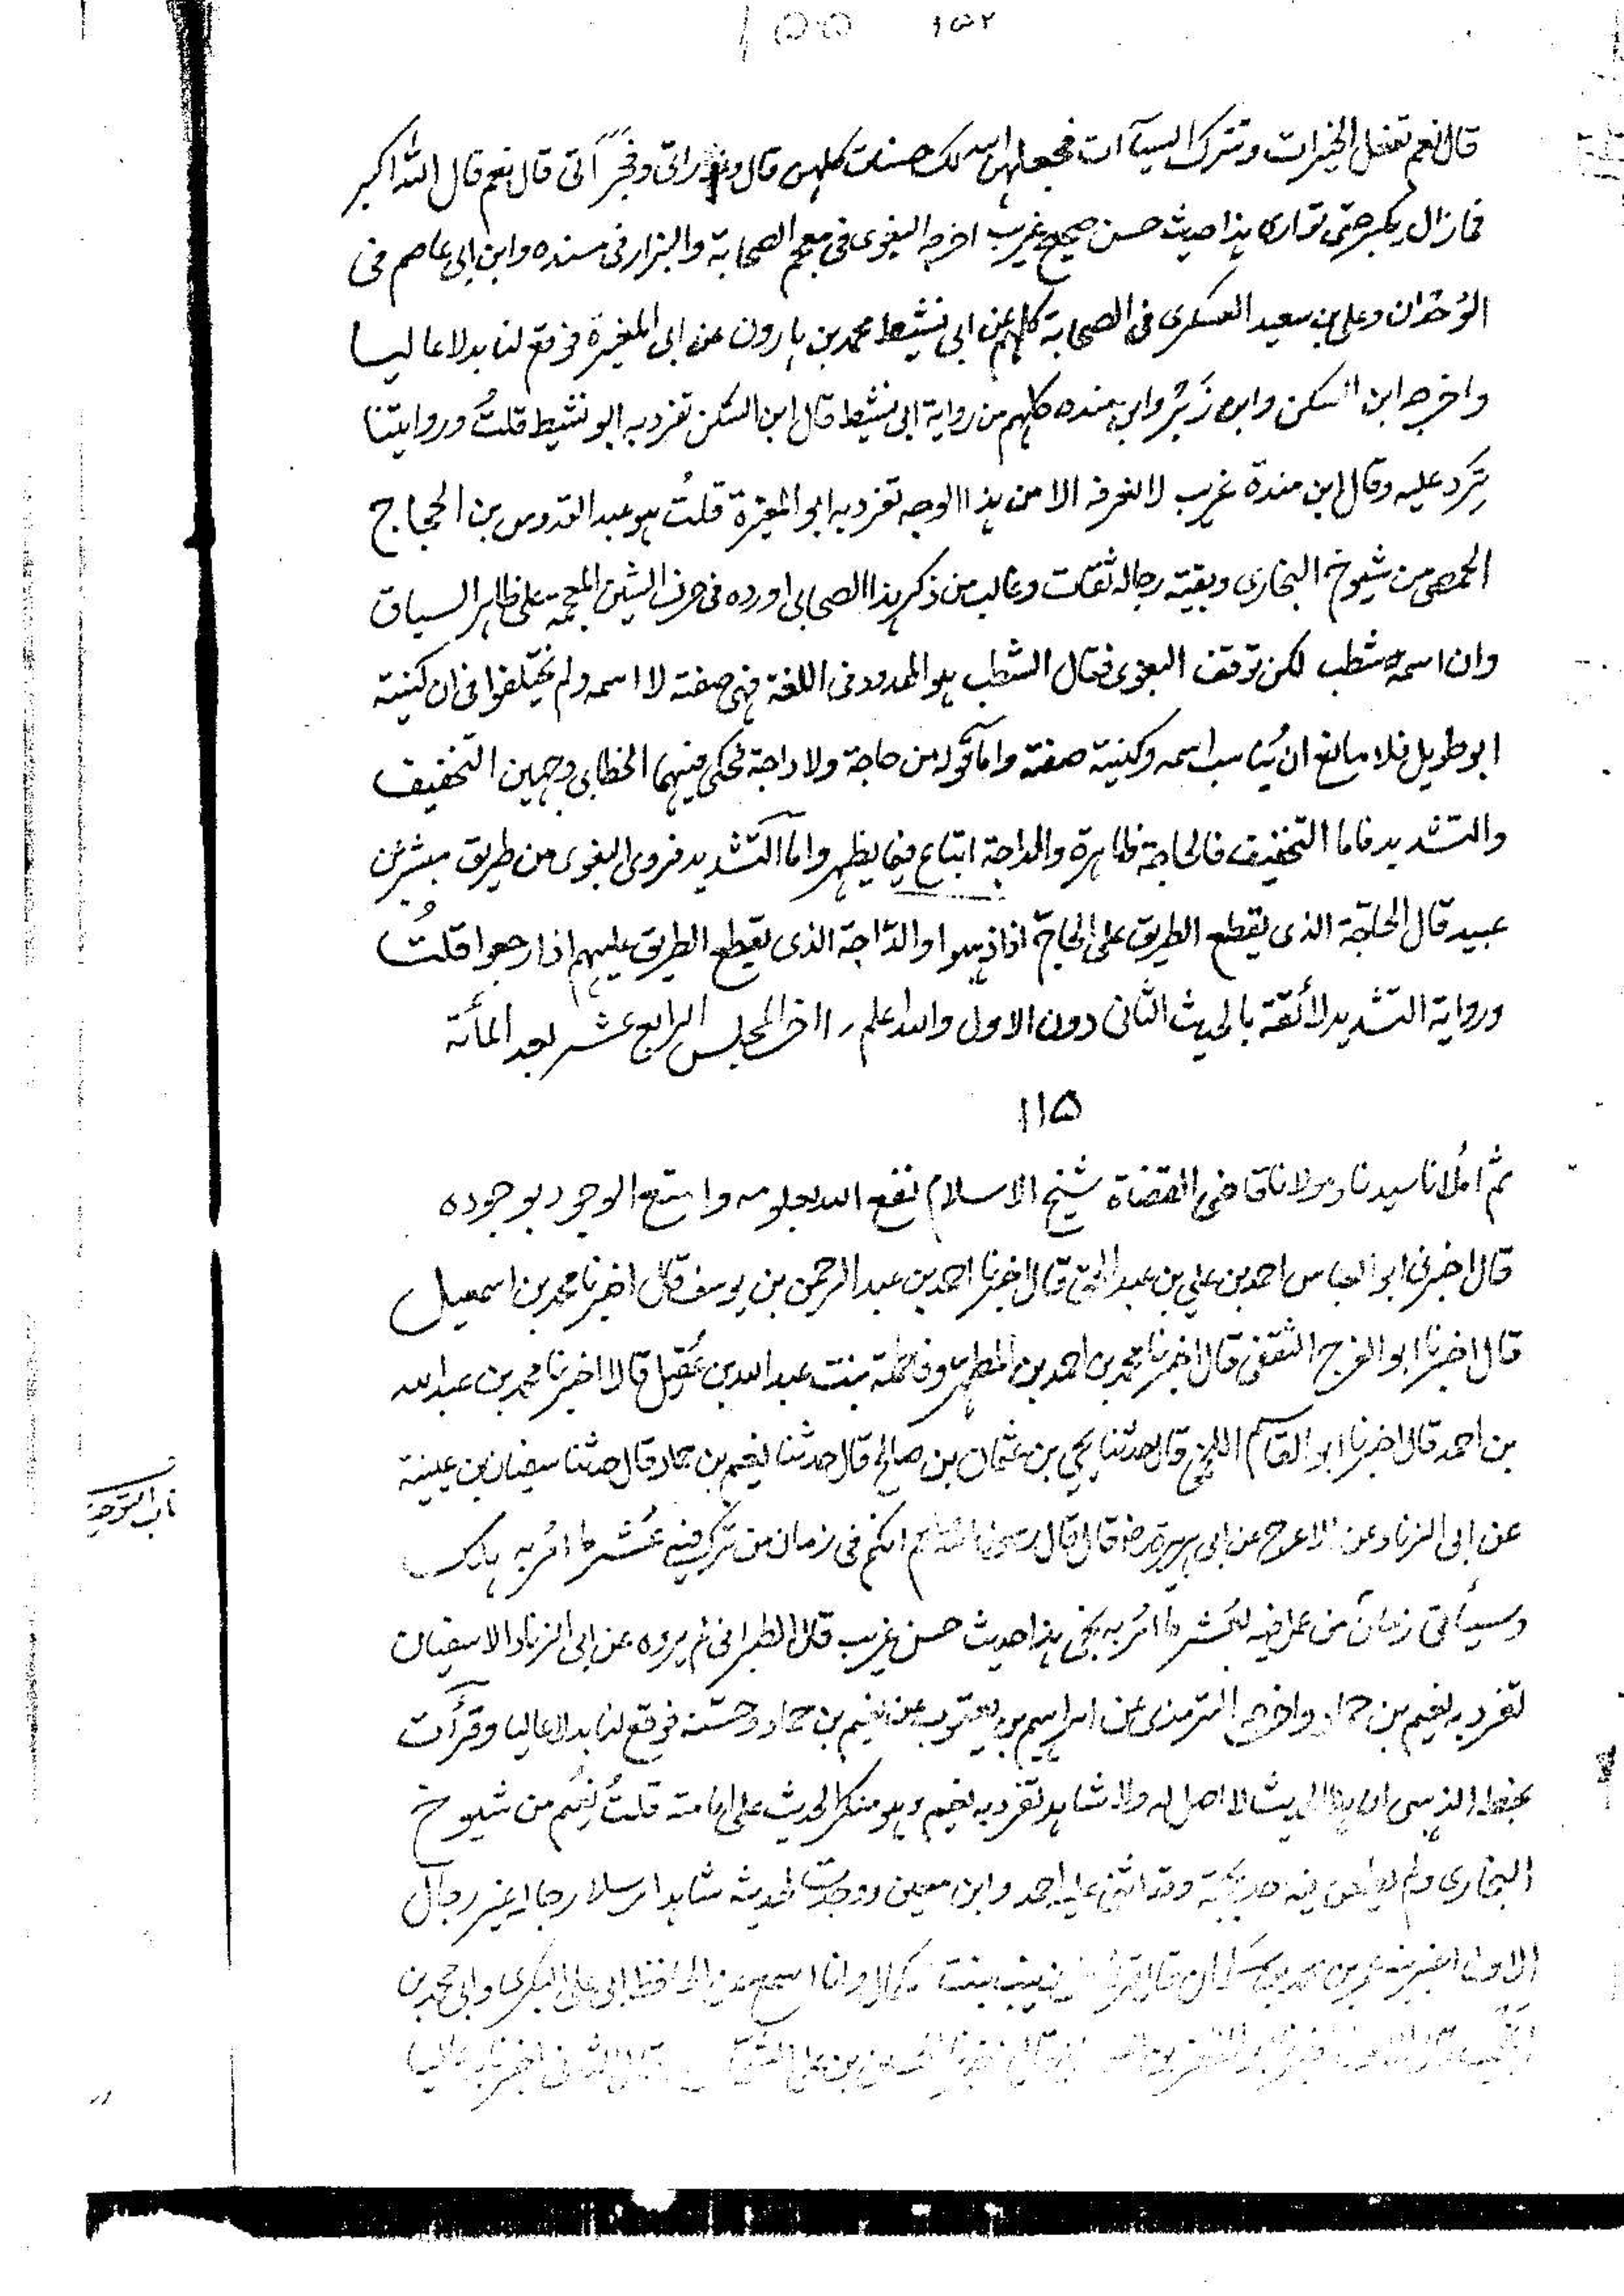 ١٥٥ ١٥٢
قال نعم تفعل الخيرات وتترك السيآت فيجعلهن الله لك حسنات كلهن قال وغدراتى وفجَرَاتى قال نعم قال الله اكبر
فما زال يكبر حتى توارى هذا حديث حسن صحيح غريب اخرجه البغوى فى معجم الصحابة والبزار فى مسنده وابن ابى عاصم فى
الوُحْدان وعلى بن سعيد العسكرى فى الصحابة كلهم عن ابى نشيط محمد بن هارون عن ابى المغيرة فوقع لنا بدلا عاليا
واخرجه ابن السكن وابن زَبْر وابن منده كلهم من رواية ابى نشيط قال ابن السكن تفرد به ابو نشيط قلتُ وروايتنا
تَرُد عليه وقال ابن مندة غريب لا نعرفه الا من هذا الوجه تفرد به ابو المغيرة قلتُ هو عبد القدوس بن الحجاج
الحمصى من شيوخ البخارى وبقية رجاله ثقات وغالب من ذكر هذا الصحابى اورده فى حرف الشين المعجمة على ظاهر السياق
وان اسمه شطب لكن توقف البغوى فقال الشطب هو الممدود فى اللغة فهى صفته لا اسمه ولم يختلفوا فى ان كنيته
ابو طويل فلا مانع ان يُناسب اسمه وكنيته صفته واما قوله من حاجة ولا داجة فحكى فيهما الخطابى وجهين التخفيف
والتشديد فاما التخفيف فالحاجة ظاهرة والداجة اتباع فيما يظهر واما التشديد فروى البغوى من طريق مبشر بن
عبيد قال الحاجّة الذى يقطع الطريق على الحاجّ اذا ذهبوا والدّاجة الذى يقطع الطريق عليهم اذا رجعوا قلتُ
ورواية التشديد لائقة بالحديث الثانى دون الاول والله اعلم ، اخر المجلس الرابع عشر بعد المأئة
١١٥
ثم املانا سيدنا ومولانا قاضى القضاة شيخ الاسلام نفع الله بعلومه وامتع الوجود بوجوده
قال اخبرنى ابو العباس احمد بن على بن عبد الحق قال اخبرنا احمد بن عبد الرحمن بن يوسف قال اخبرنا محمد بن اسمعيل
قال اخبرنا ابو الفرج الثقفى قال اخبرنا محمد بن احمد بن المطهر وفاطمة بنت عبد الله بن عقيل قالا اخبرنا محمد بن عبد الله
بن احمد قال اخبرنا ابو القاسم اللخمى قال حدثنا يحيى بن عثمان بن صالح قال حدثنا نعيم بن حماد قال حدثنا سفيان بن عيينة
عن ابى الزناد عن الاعرج عن ابى هريرة رضـ قال قال رسول الله صلعم انكم فى زمان من ترك فيه عُشْر ما امُر به هلك
وسيأتى زمان من عمل فيه بعُشر ما امُر به نجى هذا حديث حسن غريب قال الطبرانى لم يروه عن ابى الزناد الا سفيان
تفرد به نعيم بن حماد واخرجه الترمذى عن ابراهيم بن يعقوب عن نعيم بن حماد وحسّنه فوقع لنا بدلا عاليا وقرأت
بخط الذهبى ان هذا الحديث لا اصل له ولا شاهد تفرد به نعيم وهو منكر الحديث على امامته قلتُ نُعيم من شيوخ
البخارى ولم يطعن فيه احد بحجة وقد اثنى عليه احمد وابن معين ووجدت لحديثه شاهدا مرسلا رجاله غير رجال
الاول اخبرنيه عمر بن محمد بن سلمان قال قُرئ على زينب بنت الكمال وانا اسمع عن الحافظ ابى على البكرى وابى محمد بن
قال اخبرنا
باب التوحيد